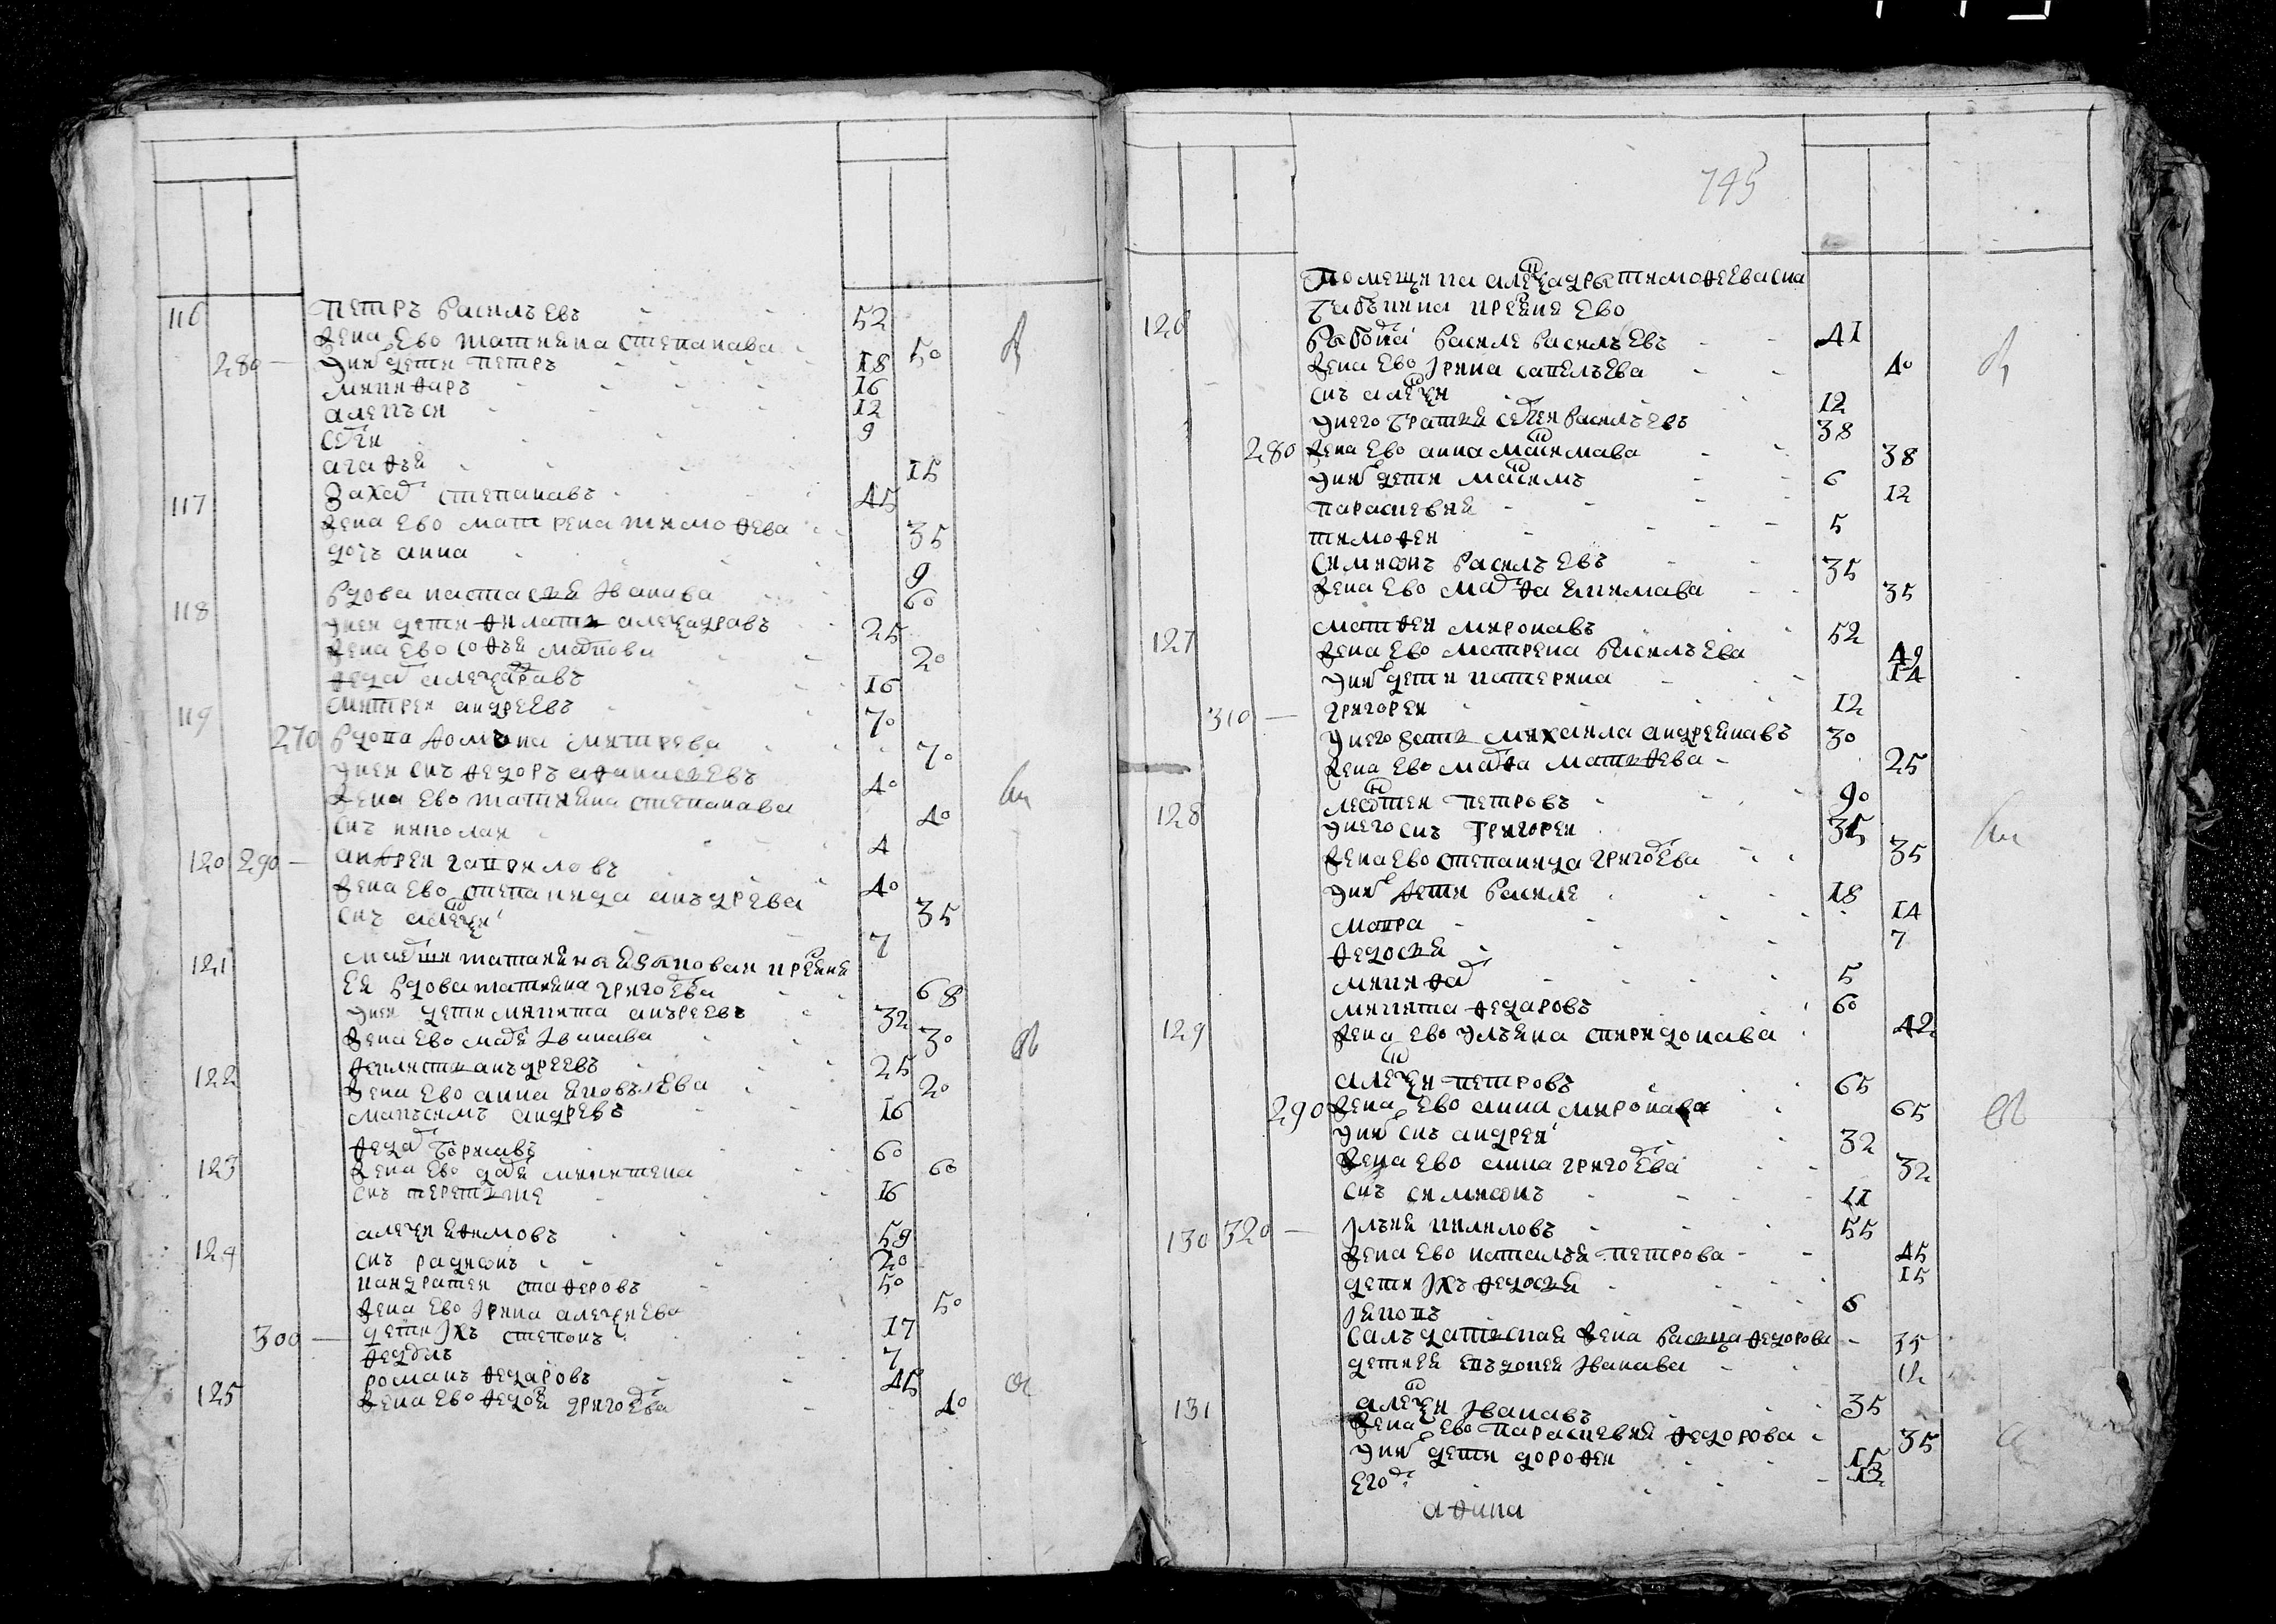 116 Петръ васильевъ 52
жена ево татияна степанава 50
280 У них дети петръ 18
никифаръ 16
алепъси 12
серги 9
агафья 15
117 Захар степанавъ 45
жена ево матрена тимофева 35
дочь анна 9
118 вдова настасия Иванава 60
У неи дети филати алексадравъ 25
жена ево софья маркова 20
федар алексадравъ 16
119 митреи андреевъ 70
270 вдова домъна митрева 70
У неи снъ федоръ афанасиевъ 40
жена ево татияна степанава 40
снъ николаи 4
120 290 андреи гавриловъ 40
жена ево степанида анъдрева 35
снъ алексеи 7
121
ея вдова татияна григорева 68
У неи дети никита анъдреевъ 32
жена ево маря Иванава 30
122 феклисти анъдреевъ 25
жена ево анна яковълева 20
макъсимъ андревъ 16
123 федар борисавъ 60
жена ево даря микитена 60
снъ терентие 16
124 алексеи ефимовъ 59
снъ радионъ 20
панкратеи стаферовъ 50
жена ево Ирина алексиева 50
300 дети Ихъ степонъ 17
федулъ 7
125 романъ федаровъ 45
жена ево федося григорева 40
745
Помещика алексадры тимофеева сна
прежне ево
126 василе васильевъ 41
жена ево Ирина савельева 40
снъ алексеи 12
У него братья сергеи васильевъ 38
280 жена ево анна максимава 38
У них дети максимъ 6
парасковия 12
тимофеи 5
симионъ васильевъ 35
жена ево марфа якимава 35
127 матфеи миронавъ 52
жена ево матрена васильева 49
У них дети катерина 14
310 григореи 12
У него зять михаила андреянавъ 30
жена ево марфа матифева 25
128 петровъ 90
У него снъ Григореи 35
жена ево степанида григорева 35
У них дети василе 18
мавра 14
федосия 7
никифар 5
129 никита федаровъ 60
жена ево Ульяна спиридонава 42
алексеи петровъ 65
290 жена ево анна миронава 65
У них снъ андреи 32
жена ево анна григорева 32
снъ симионъ 11
130 320 Илья 55
жена ево наталья петрова 45
дети Ихъ федосия 15
Яковъ 6
салъдатиская жена федорова 35
Иванава 12
131 алексеи Иванавъ 35
жена ево парасковия федорова 35
У них дети дорофеи 15
егор 12
афина